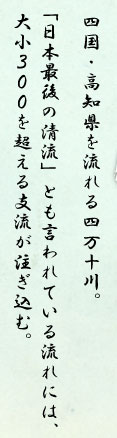 四国・高知県を流れる四万十川。
「日本最後の清流」とも言われている流れには、
大小300を超える支流が注ぎ込む。